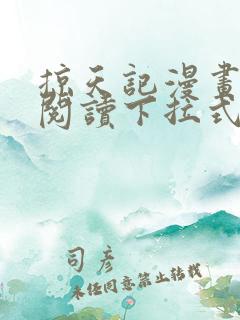 掠天記漫畫
閱讀下拉式
司彥
未經同意禁止轉載